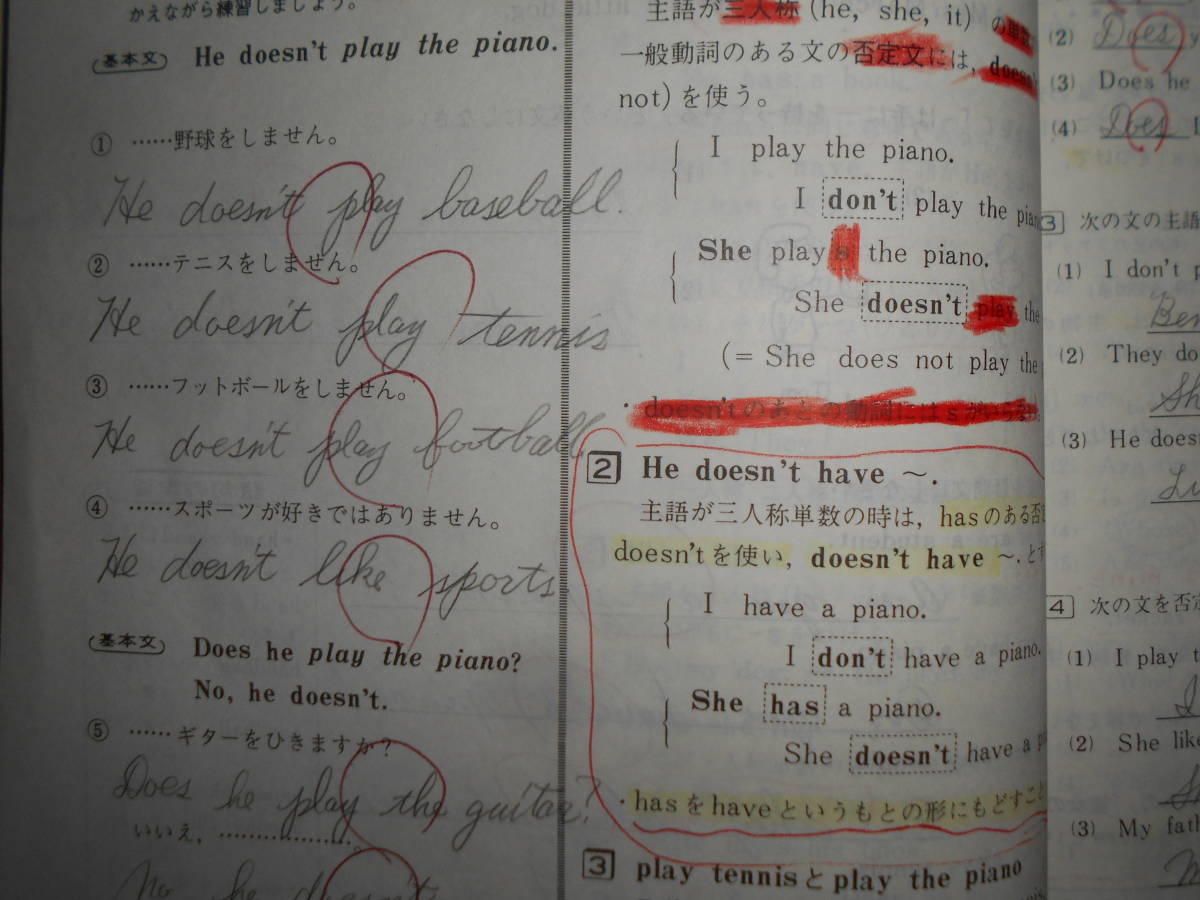 かえながら練習しましょう。
基本文 He doesn't play the piano.
① ……野球をしません。
He doesn't play baseball.
② ……テニスをしません。
He doesn't play tennis
③ ……フットボールをしません。
He doesn't play football
④ ……スポーツが好きではありません。
He doesn't like sports.
基本文 Does he play the piano?
No, he doesn't.
⑤ ……ギターをひきますか?
Does he play the guitar?
いいえ, …………………。
No he doesn't
主語が三人称 (he, she, it) の
一般動詞のある文の否定文には,
not) を使う。
I play the piano.
I don't play the
She plays the piano.
She doesn't play the
(= She does not play the
・doesn'tのあとの動詞にはsがいら
2 He doesn't have ～.
主語が三人称単数の時は, hasのある否
doesn'tを使い, doesn't have ～.と
I have a piano.
I don't have a piano.
She has a piano.
She doesn't have a
・hasをhaveというもとの形にもどすこと
3 play tennisとplay the piano
(2) Does
(3) Does he
(4) Does
3 次の文の主語
(1) I don't
(2) They do
(3) He does
4 次の文を否定
(1) I play
I
(2) She like
(3) My fath